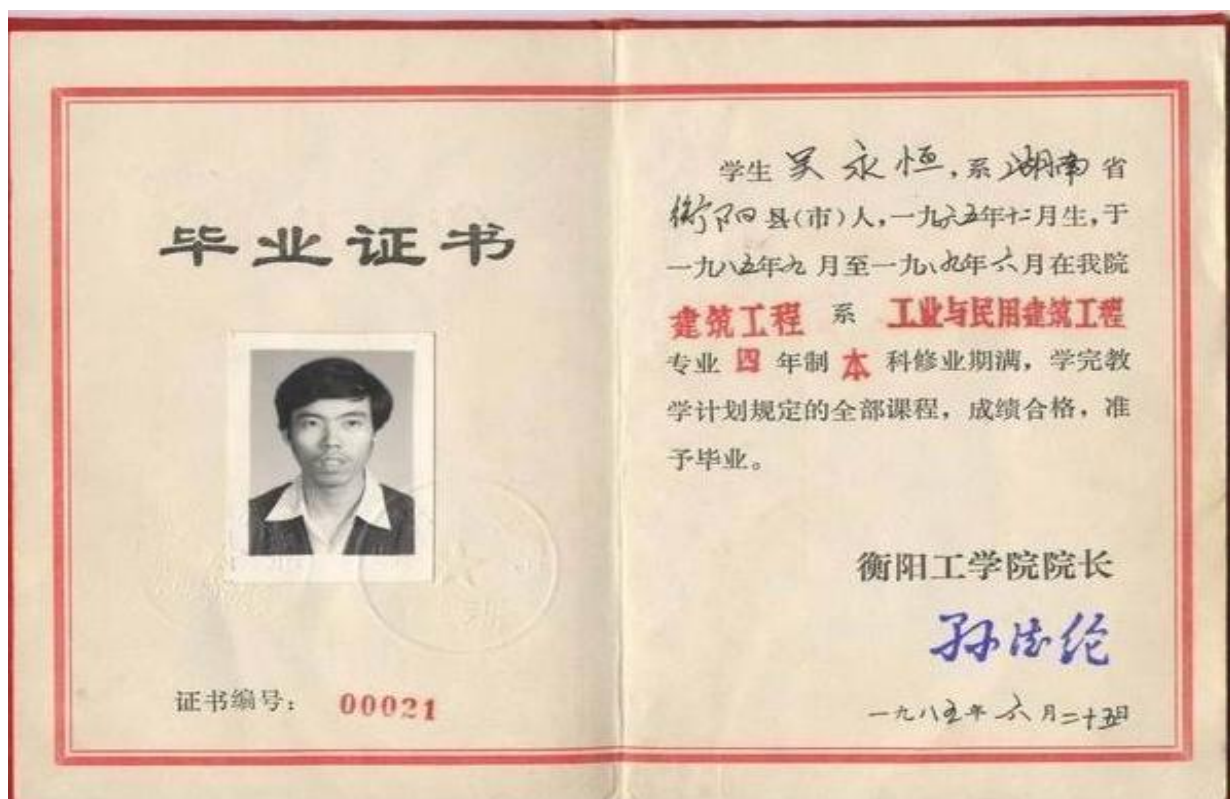 毕业证书
证书编号： 00021
学生 吴永恒，系 湖南 省
衡阳 县(市)人，一九六五年十二月生，于
一九八五年九月至一九八九年六月在我院
建筑工程 系 工业与民用建筑工程
专业 四 年制 本 科修业期满，学完教
学计划规定的全部课程，成绩合格，准
予毕业。
衡阳工学院院长
一九八五年六月二十五日